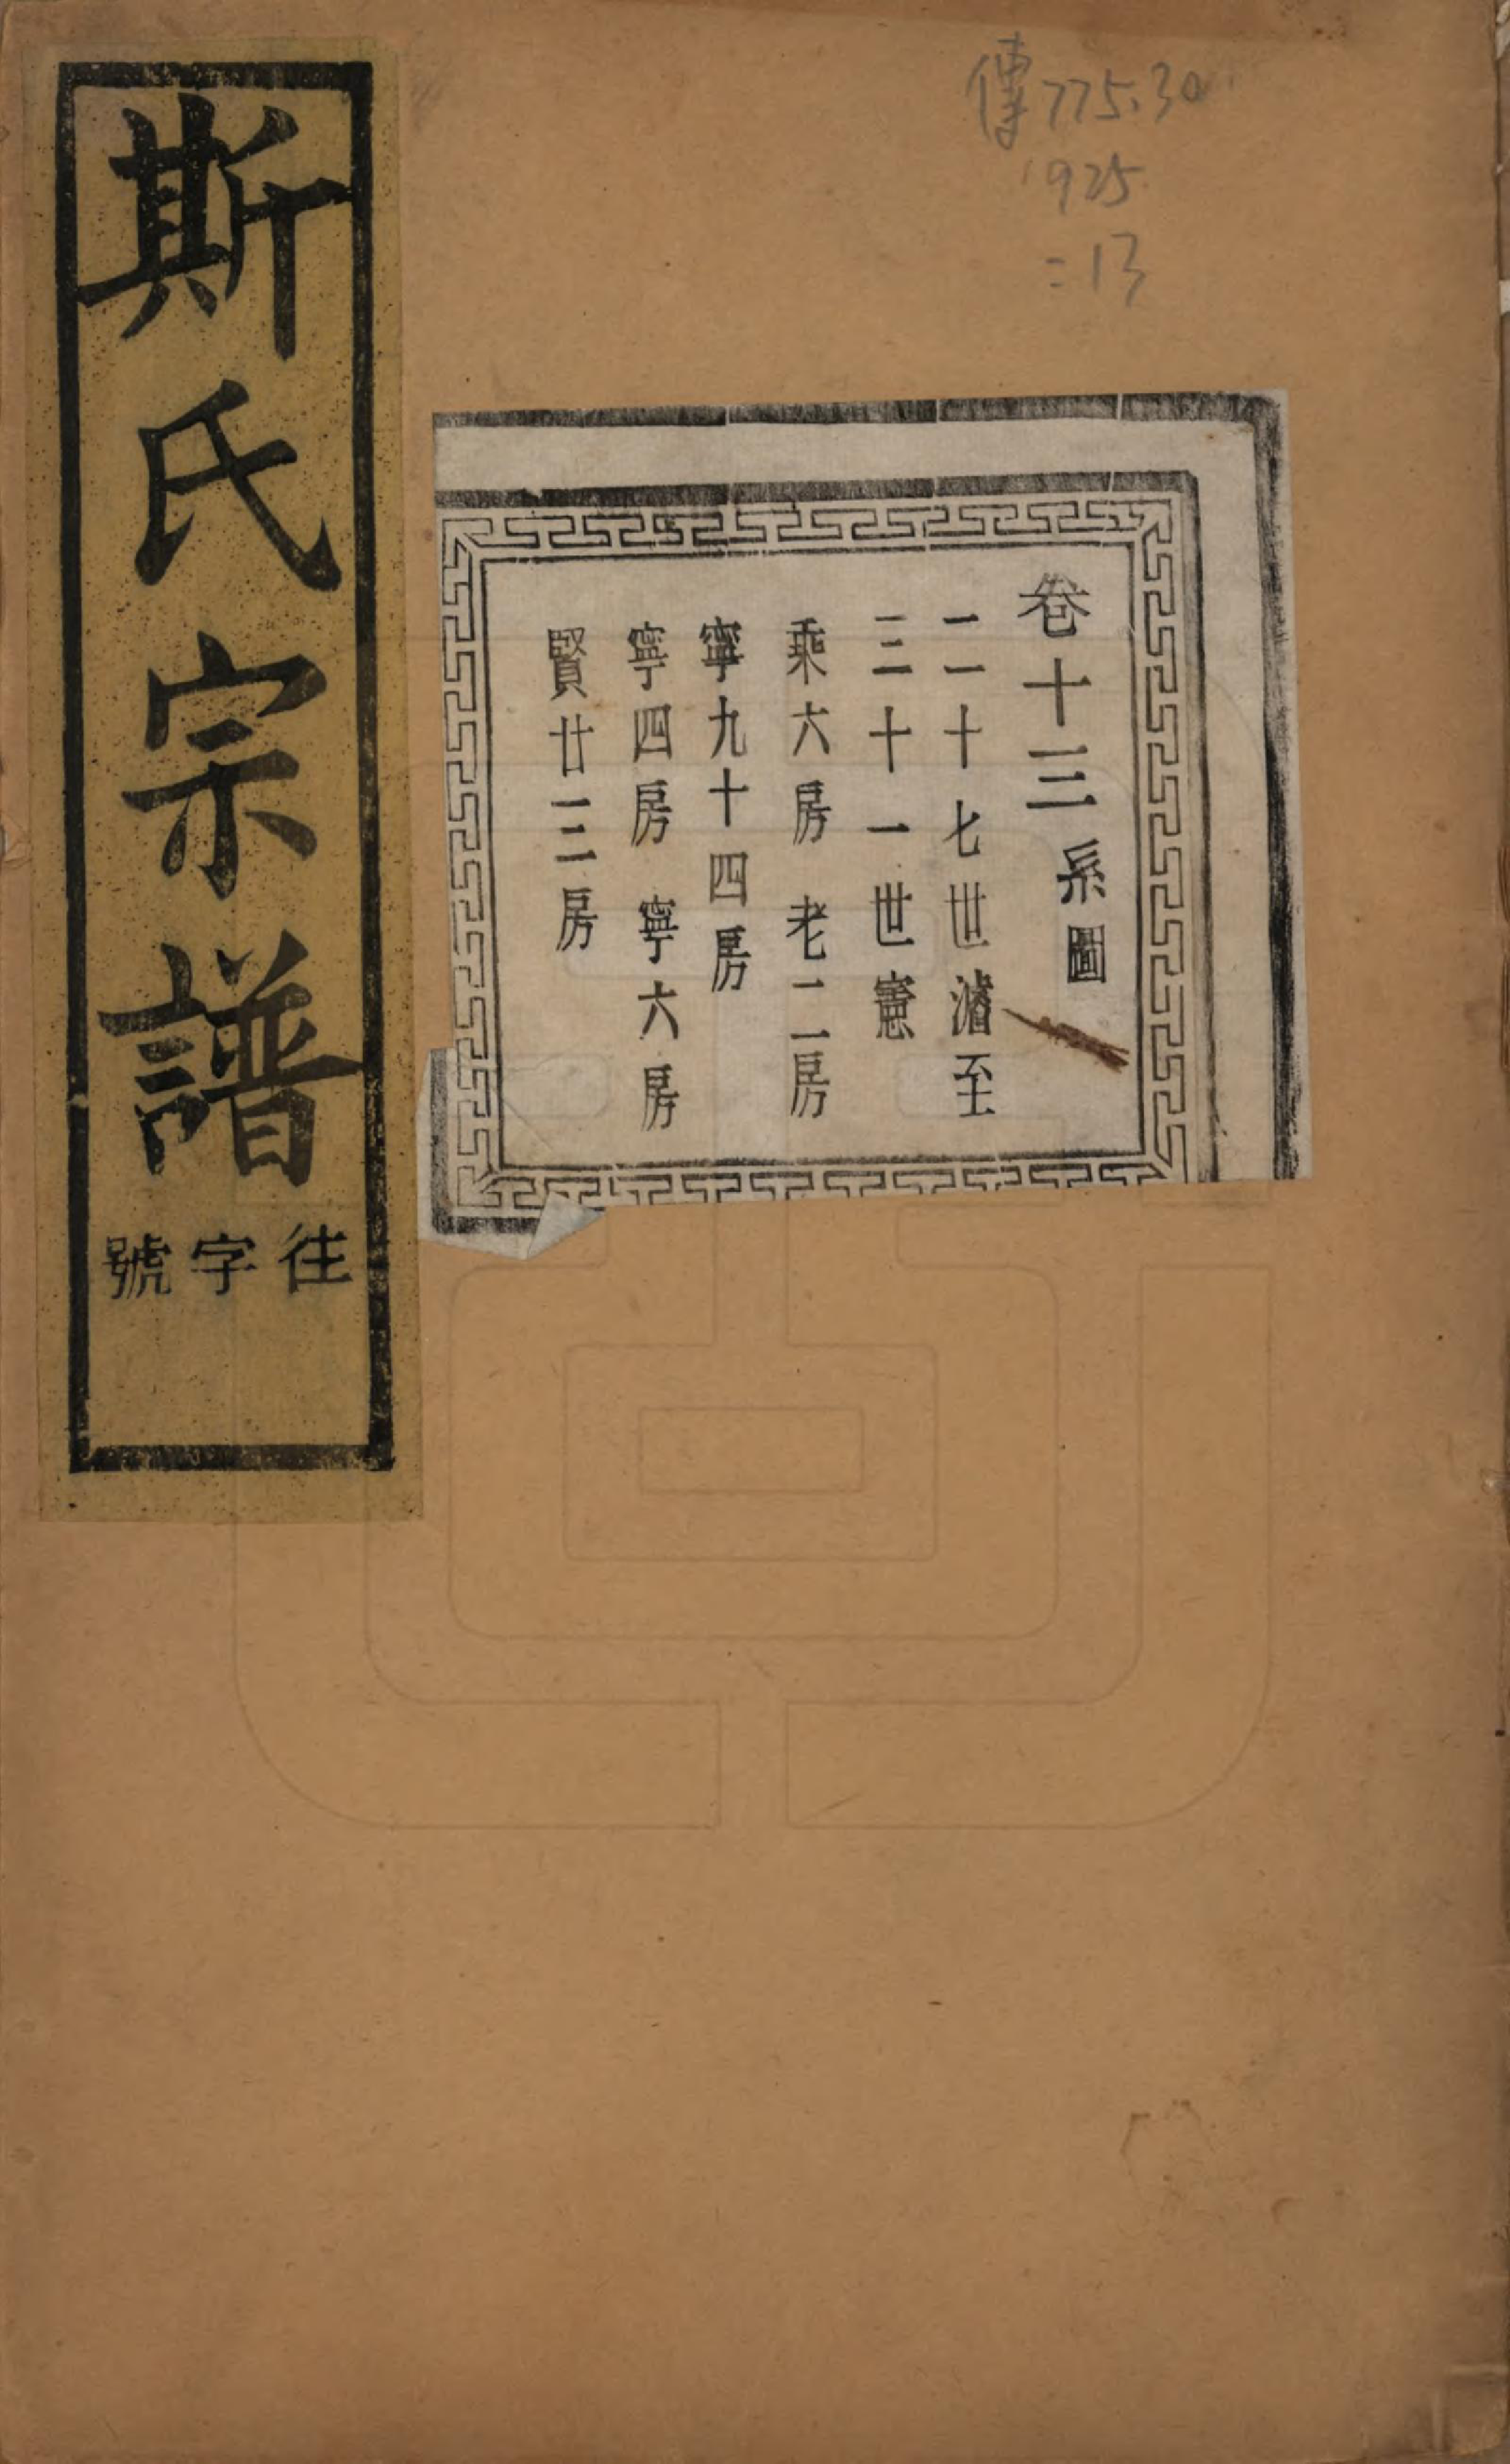 傳 775.30
925
=13
卷十三系圖
二十七世濬至
三十一世憲
乘六房 老二房
寧九十四房
寧四房 寧六房
賢廿三房
斯氏宗譜
往字號